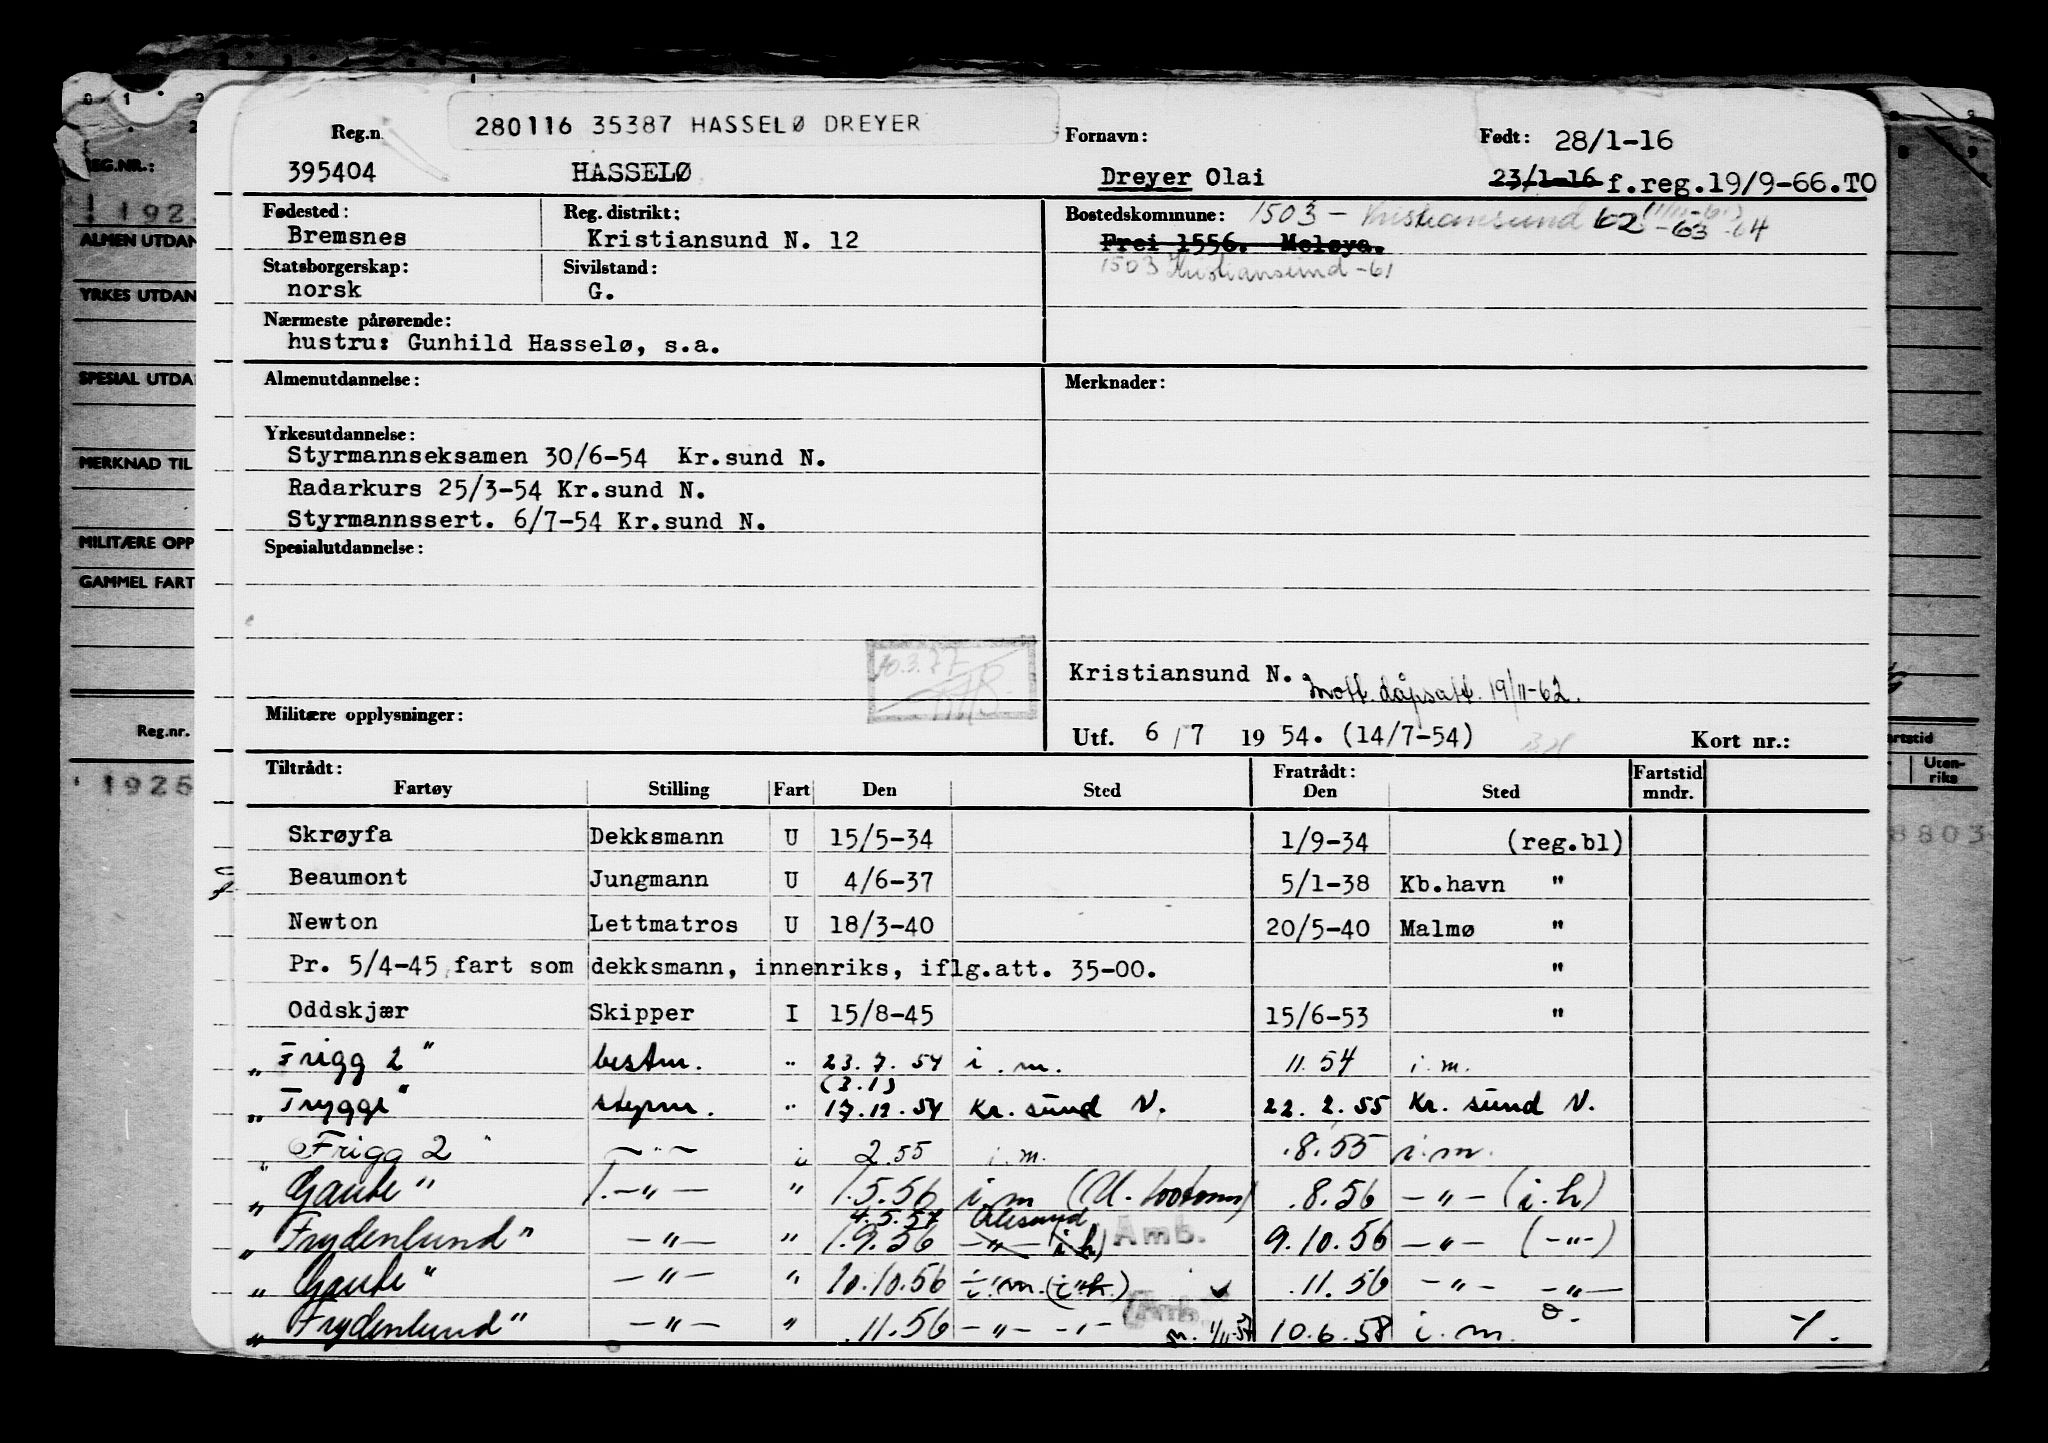 280116 35387 HASSELØ DREYER
Reg.n
395404 HASSELØ
Fornavn:
Dreyer Olai
Født: 28/1-16
23/1-16 f.reg.19/9-66.TO
Fødested:
Bremsnes
Reg. distrikt:
Kristiansund N. 12
Bostedskommune: 1503 - Kristiansund 62 -63 -64
Frei 1556. Meløya.
1503 Kristiansund -61
Statsborgerskap:
norsk
Sivilstand:
G.
Nærmeste pårørende:
hustru: Gunhild Hasselø, s.a.
Almenutdannelse:
Merknader:
Yrkesutdannelse:
Styrmannseksamen 30/6-54 Kr.sund N.
Radarkurs 25/3-54 Kr.sund N.
Styrmannssert. 6/7-54 Kr.sund N.
Spesialutdannelse:
10.3.77
Kristiansund N. Mott. dåpsatt. 19/11-62.
Militære opplysninger:
Utf. 6/7 1954. (14/7-54) Kort nr.:
Tiltrådt: Fratrådt: Fartstid
Fartøy Stilling Fart Den Sted Den Sted mndr.
Skrøyfa Dekksmann U 15/5-34 1/9-34 (reg.bl)
Beaumont Jungmann U 4/6-37 5/1-38 Kb.havn "
Newton Lettmatros U 18/3-40 20/5-40 Malmø "
Pr. 5/4-45 fart som dekksmann, innenriks, iflg.att. 35-00. "
Oddskjær Skipper I 15/8-45 15/6-53 "
„Frigg 2" bestm. " 23.7.54 i.m. 11.54 i.m.
(3.1)
„Trygge" styrm. " 17.12.54 Kr. sund N. 22.2.55 Kr. sund N.
„Frigg 2" —"— i 2.55 i.m. .8.55 i.m.
„Gaute" 1.—"— " 1.5.56 i.m .8.56 —"— (i.h)
4.5.57 Ålesund
„Frydenlund" —"— " 1.9.56 —"— (i h) Amb. 9.10.56 —"— (—"—)
„Gaute" —"— " 10.10.56 i.m. (i.h.) .11.56 —"— —"—
„Frydenlund" —"— " .11.56 —"— —"— Amb. 10.6.58 i.m.
REG.NR.:
! 192
ALMEN UTDAN
YRKES UTDAN
SPESIAL UTDA
MERKNAD TIL
MILITÆRE OPP
GAMMEL FART
Reg.nr.
1925
artstid
Uten-
riks
8803